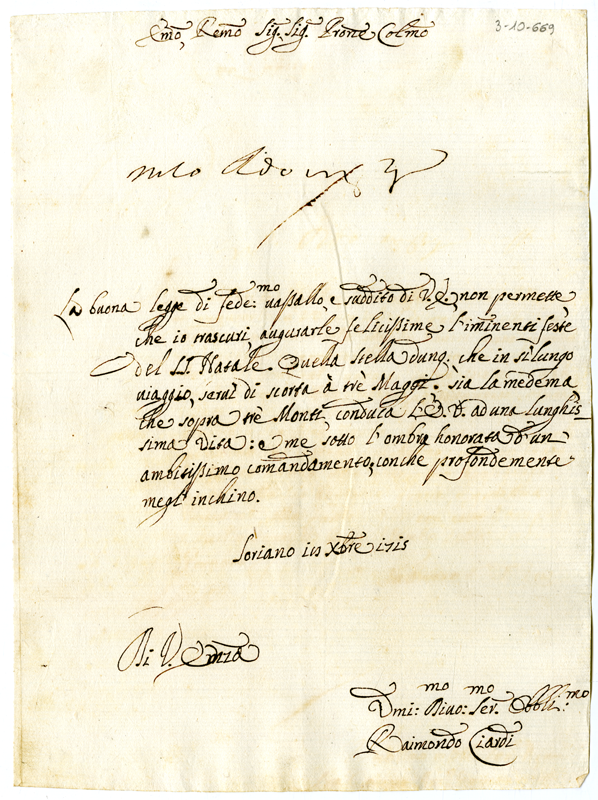 Emo, Remo Sig. Sig. Prone Colmo
3-10-669
La buona legge di fede:mo vassallo, e suddito di V.E. non permette
che io trascuri augurarle felicissime l'iminenti feste
del SS. Natale. Quella stella dunq. che in sì lungo
viaggio, servì di scorta à trè Maggi. sia la medema
che sopra trè Monti conduca l'E.V. ad una lunghis-
sima vita: e me sotto l'ombra honorata d'un
ambitissimo comandamento, con che profondemente
megl'inchino.
Soriano Xbre 1715
Di V. Emza
Umi:mo Divo:mo Ser. Obbli:mo
Raimondo Ciardi